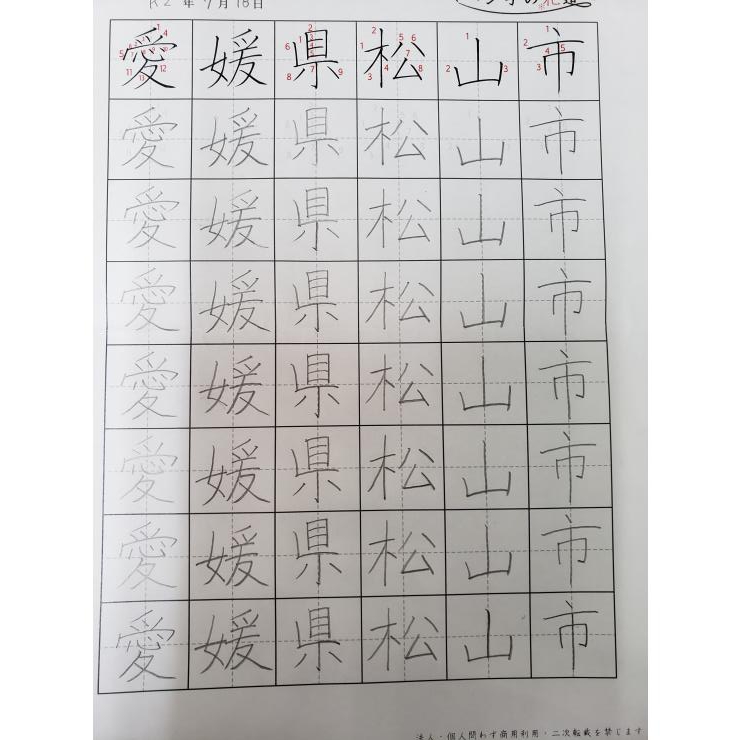 R2 年 9月 18日
愛媛県松山市
愛媛県松山市
愛媛県松山市
愛媛県松山市
愛媛県松山市
愛媛県松山市
愛媛県松山市
愛媛県松山市
法人・個人問わず商用利用・二次転載を禁じます